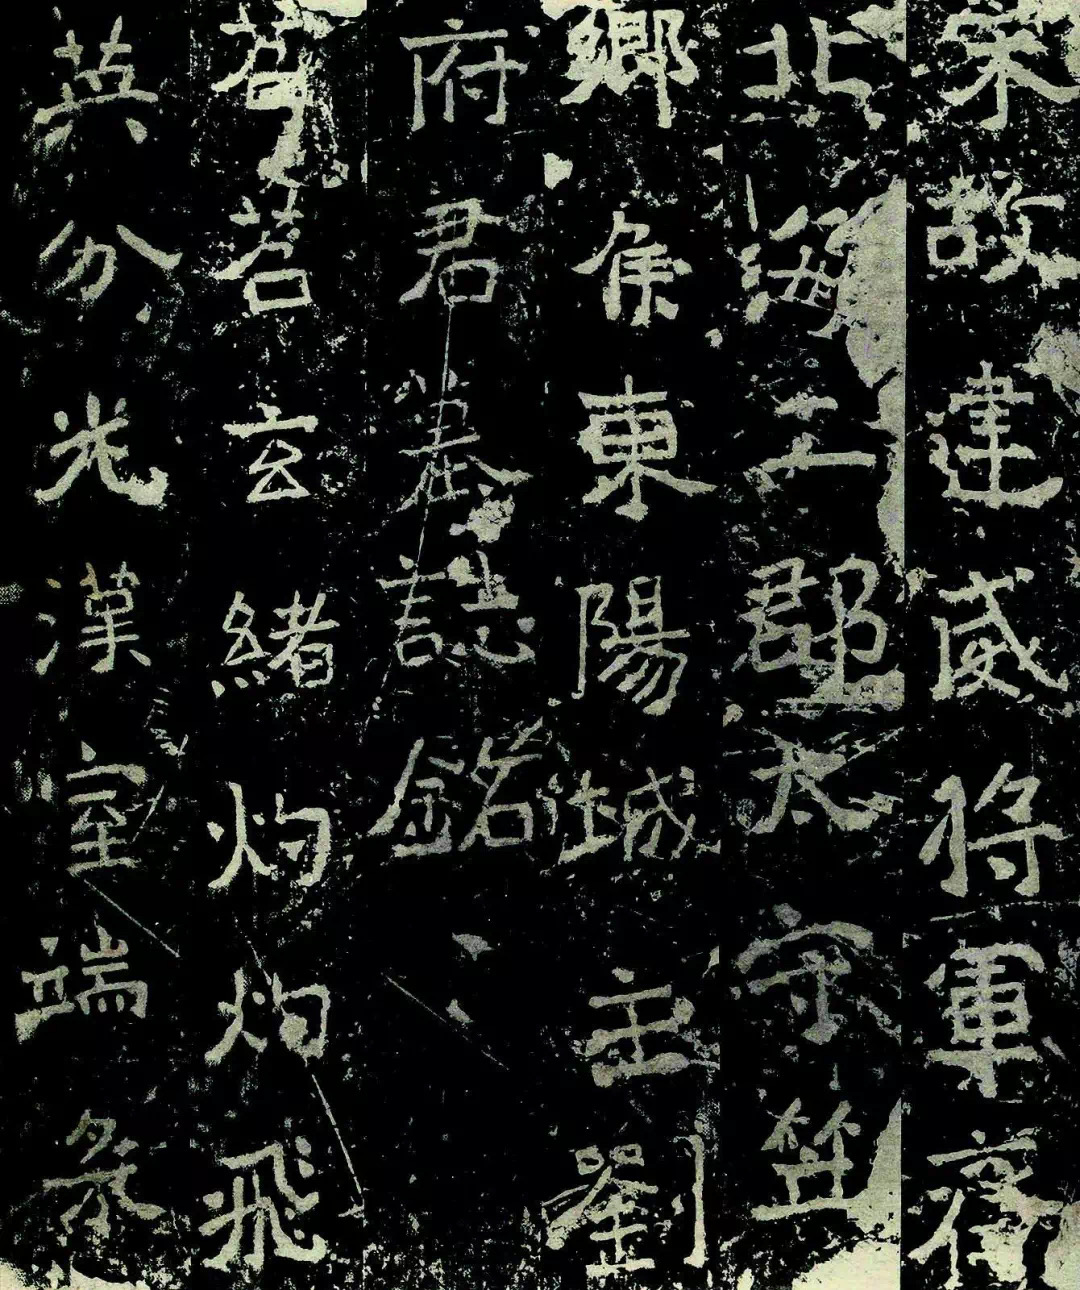 宋故建威將軍齊
北海二郡太守笠
鄉侯東陽城主劉
府君墓誌銘
苕苕玄緒灼灼飛
英分光漢室端彔